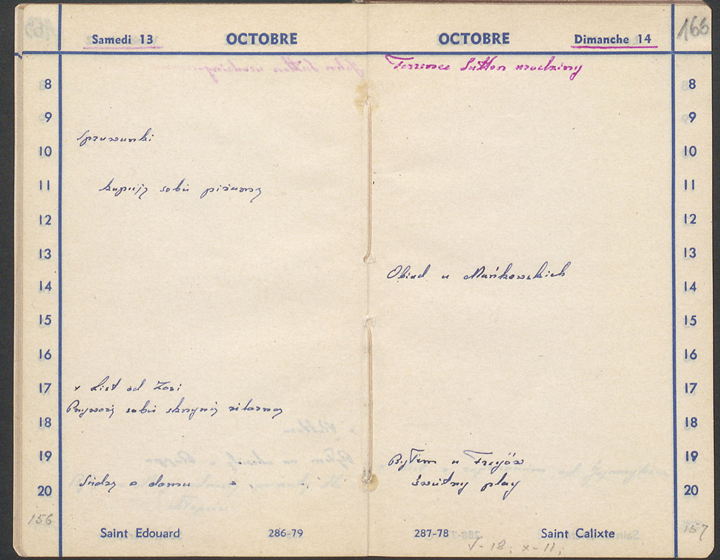 Samedi 13 OCTOBRE
8
9
Sprawunki
10
11
kupuję sobie piżamę
12
13
14
15
16
17
x List od Zosi
Przywożę sobie skrzynię
18
19
20
Siedzę w domu
156
Saint Edouard 286-79
OCTOBRE Dimanche 14
166
Terrence Sutton urodziny
8
9
10
11
12
13
Obiad u Mańkowskich
14
15
16
17
18
19
Byłem u Freyów
świetny play
20
287-78 Saint Calixte
157
V-18; X-11;